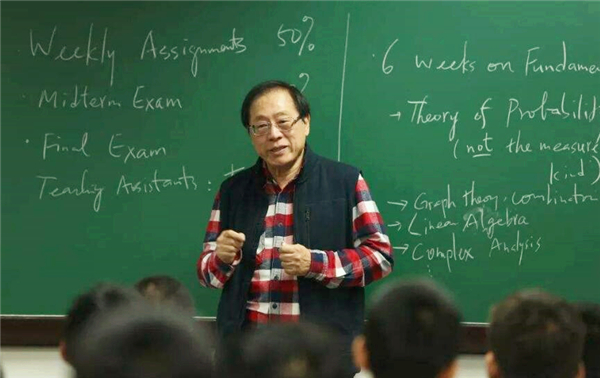 Weekly Assignments 50%
Midterm Exam ?
Final Exam
Teaching Assistants :
6 Weeks on Fundame
→ Theory of Probabilit
(not the measure
kind)
→ Graph theory, combinator
→ Linear Algebra
→ Complex Analysis